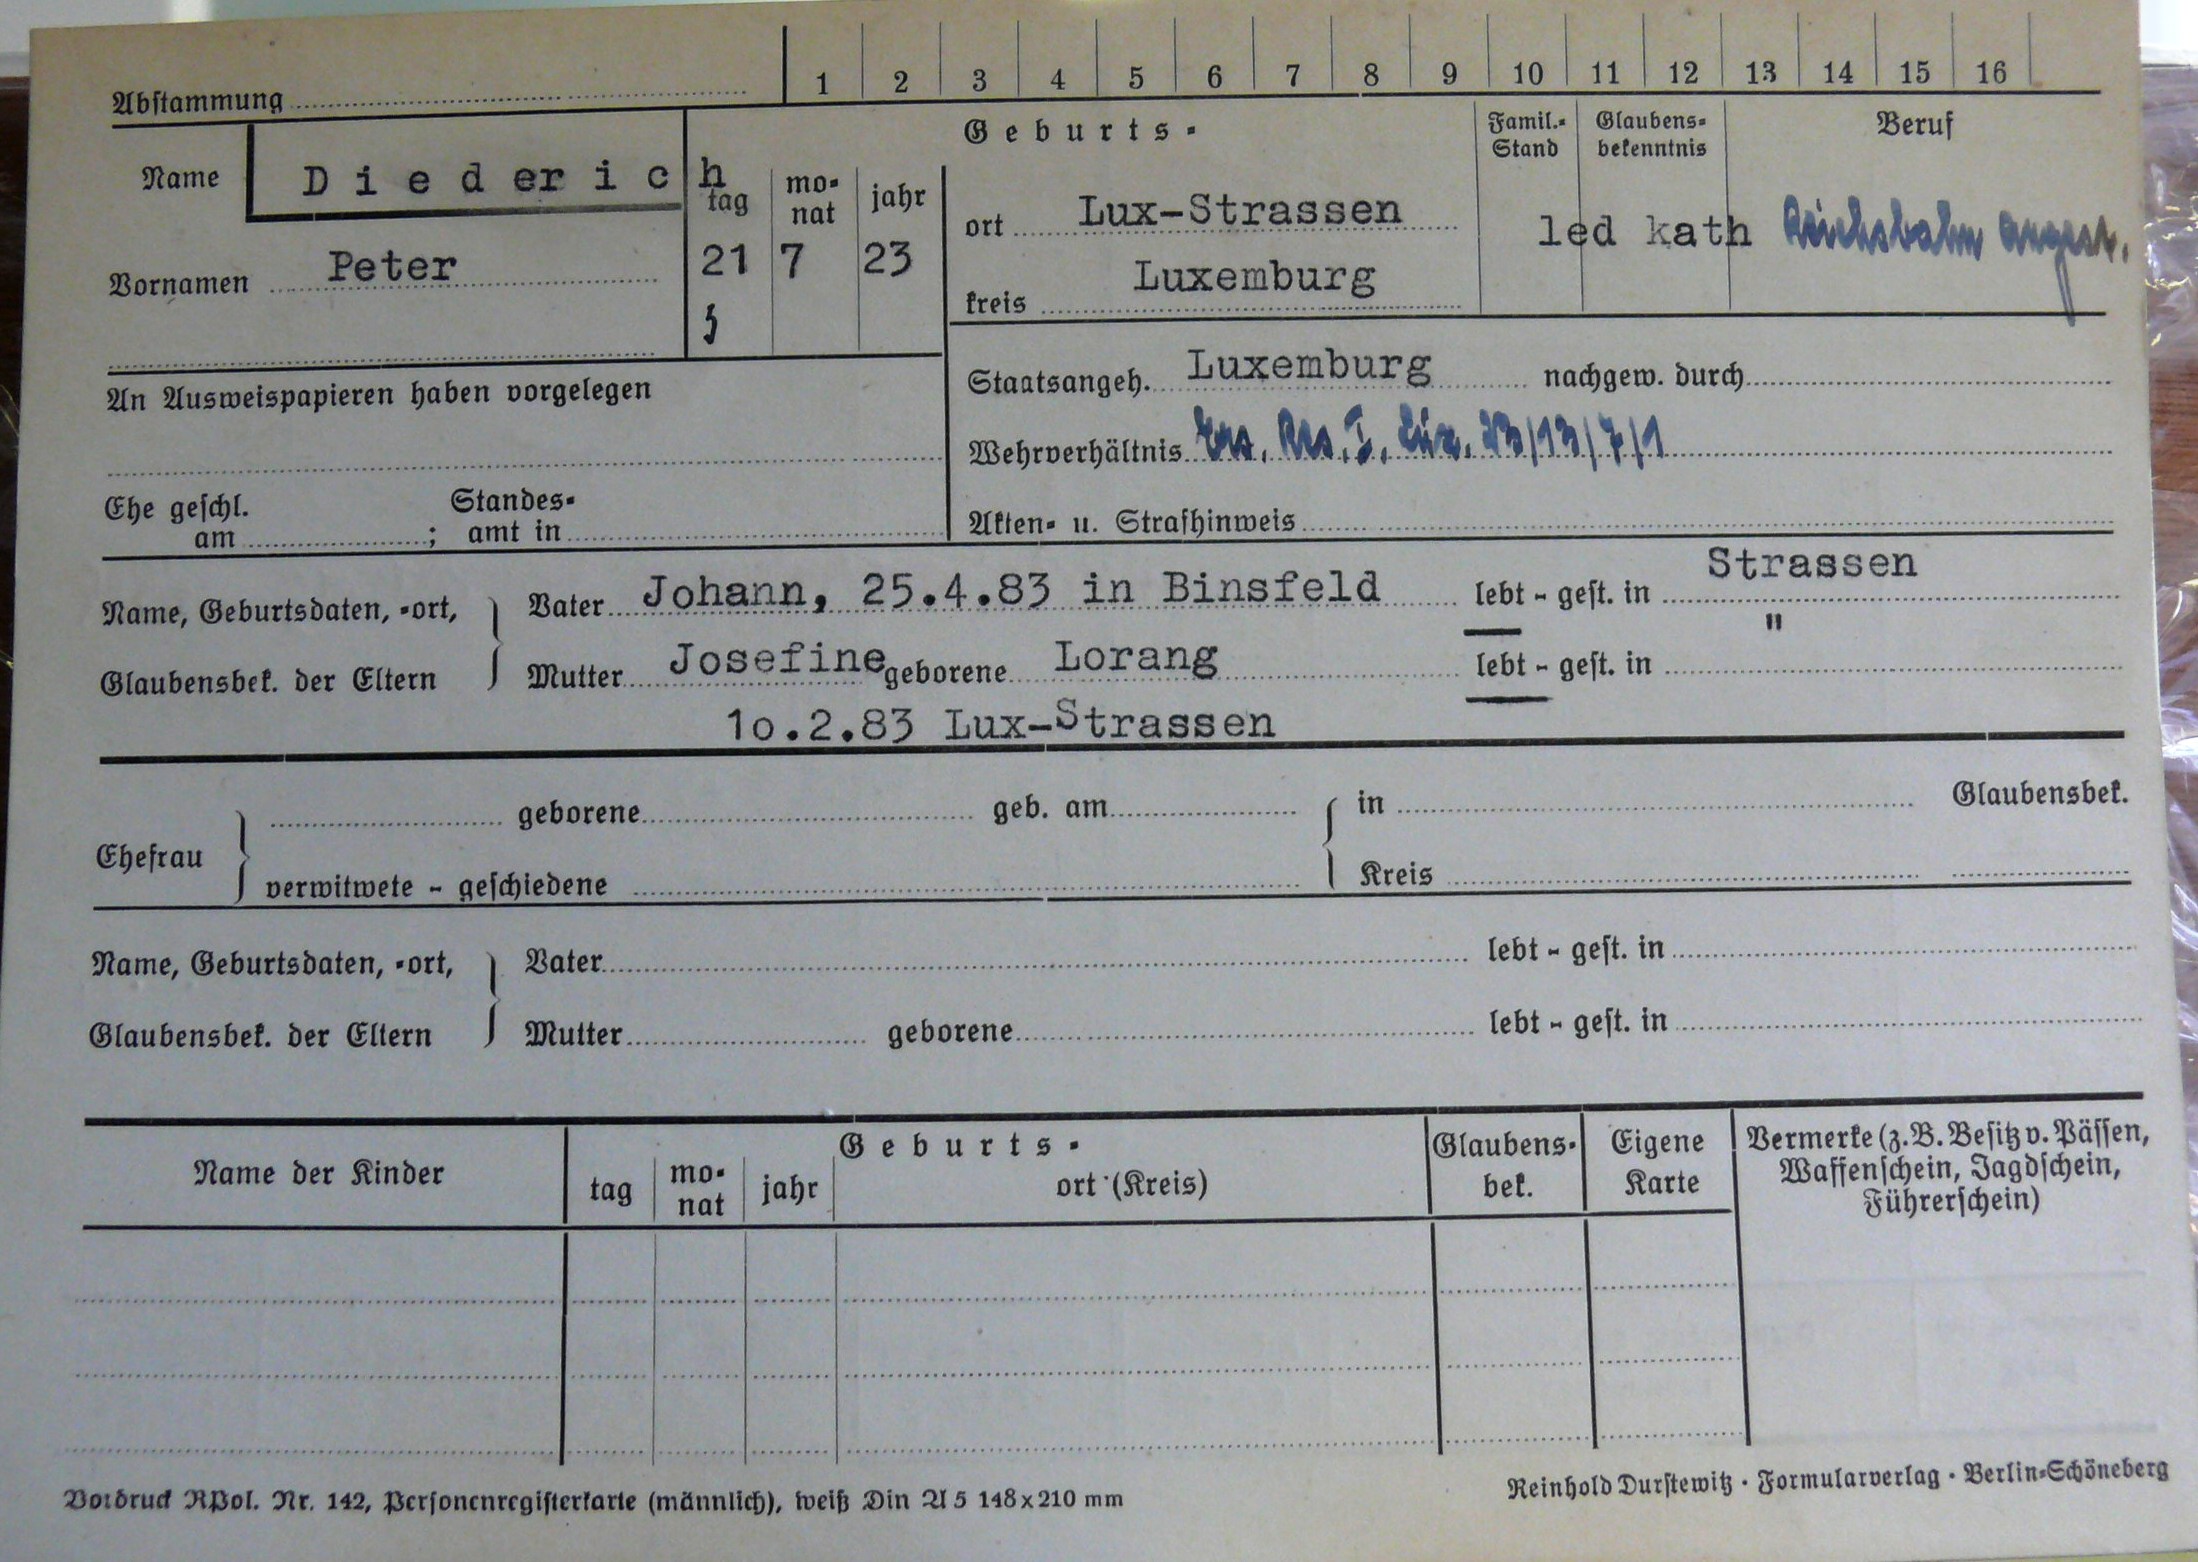 Abstammung 1 2 3 4 5 6 7 8 9 10 11 12 13 14 15 16
Name Diederich
Vornamen Peter
Geburts-
tag monat jahr
21 7 23
ort Lux-Strassen
kreis Luxemburg
Famil.-Stand
led
Glaubens-bekenntnis
kath
Beruf
Reichsbahn angest.
An Ausweispapieren haben vorgelegen
Staatsangeh. Luxemburg nachgew. durch
Wehrverhältnis Ers. Res. I. Lux. 23/13/7/1
Ehe geschl. am ; Standes-amt in
Akten- u. Strafhinweis
Name, Geburtsdaten, -ort,
Glaubensbek. der Eltern
Vater Johann, 25.4.83 in Binsfeld lebt - gest. in Strassen
Mutter Josefine geborene Lorang lebt - gest. in "
1o.2.83 Lux-Strassen
Ehefrau
geborene geb. am in Glaubensbek.
verwitwete - geschiedene Kreis
Name, Geburtsdaten, -ort,
Glaubensbek. der Eltern
Vater lebt - gest. in
Mutter geborene lebt - gest. in
Name der Kinder
Geburts-
tag monat jahr ort (Kreis)
Glaubens-bek.
Eigene Karte
Vermerke (z. B. Besitz v. Pässen,
Waffenschein, Jagdschein,
Führerschein)
Vordruck RPol. Nr. 142, Personenregisterkarte (männlich), weiß Din A 5 148x210 mm
Reinhold Durstewitz · Formularverlag · Berlin-Schöneberg